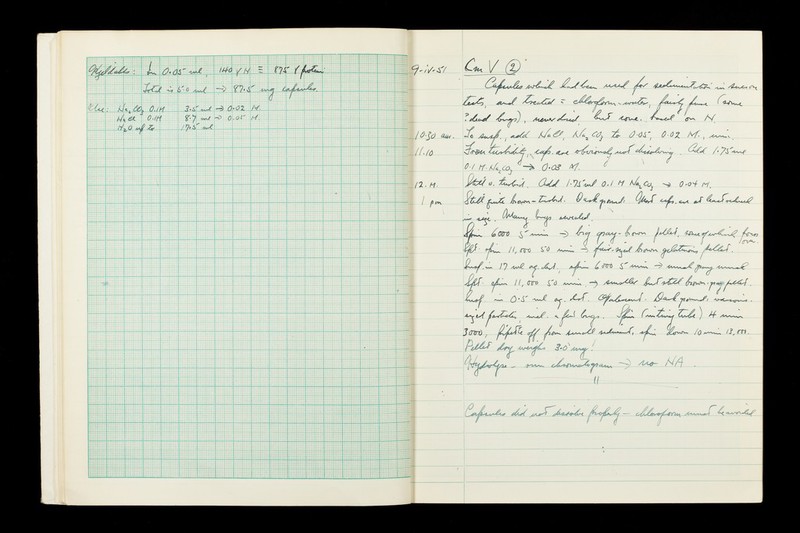 Kjeldahls : In 0.05 ml, 140 γ N ≡ 875 γ protein
Total in 5.0 ml → 87.5 mg capsules.
Else: Na2CO3 0.1M 3.5 ml → 0.02 M.
NaCl 0.1M 8.7 ml → 0.05 M.
H2O up to 17.5 ml
9-iv-51 Cm V (2)
Capsules which had been used for sedimentation in sucrose
tests, and treated = chloroform-water, fairly pure (some
? dead bugs), never dried but some. on N.
10.30 am. To susp., add NaCl, Na2CO3 to 0.05, 0.02 M.,
11.10 From turbidity, caps. are obviously not dissolving. Add 1.75 ml
0.1 M Na2CO3 → 0.03 M.
12. M. Still v. turbid. Add 1.75 ml 0.1 M Na2CO3 → 0.04 M.
1 pm Still quite brown-turbid. Dark ground. Most caps. are at least reduced
in size. Many bugs revealed.
Spin 6000 5 min → big gray-brown pellet, some of which pours
over.
Spt spin 11,000 50 min → fair-sized brown gelatinous pellet.
Susp. in 17 ml aq. dist., spin 6000 5 min → small gray
Spt. spin 11,000 50 min. → smaller but still brown-gray pellet.
Susp. in 0.5 ml aq. dist. Opalescent. Dark ground: various
sized particles, incl. a few bugs. Spin (in tiny tube) 4 min
3000, pipette off from small sediment, spin down 10 min 13,000.
Pellet dry weighs 3.0 mg!
Hydrolyse - run chromatogram → no NA.
!!
Capsules did not dissolve properly - chloroform must be avoided